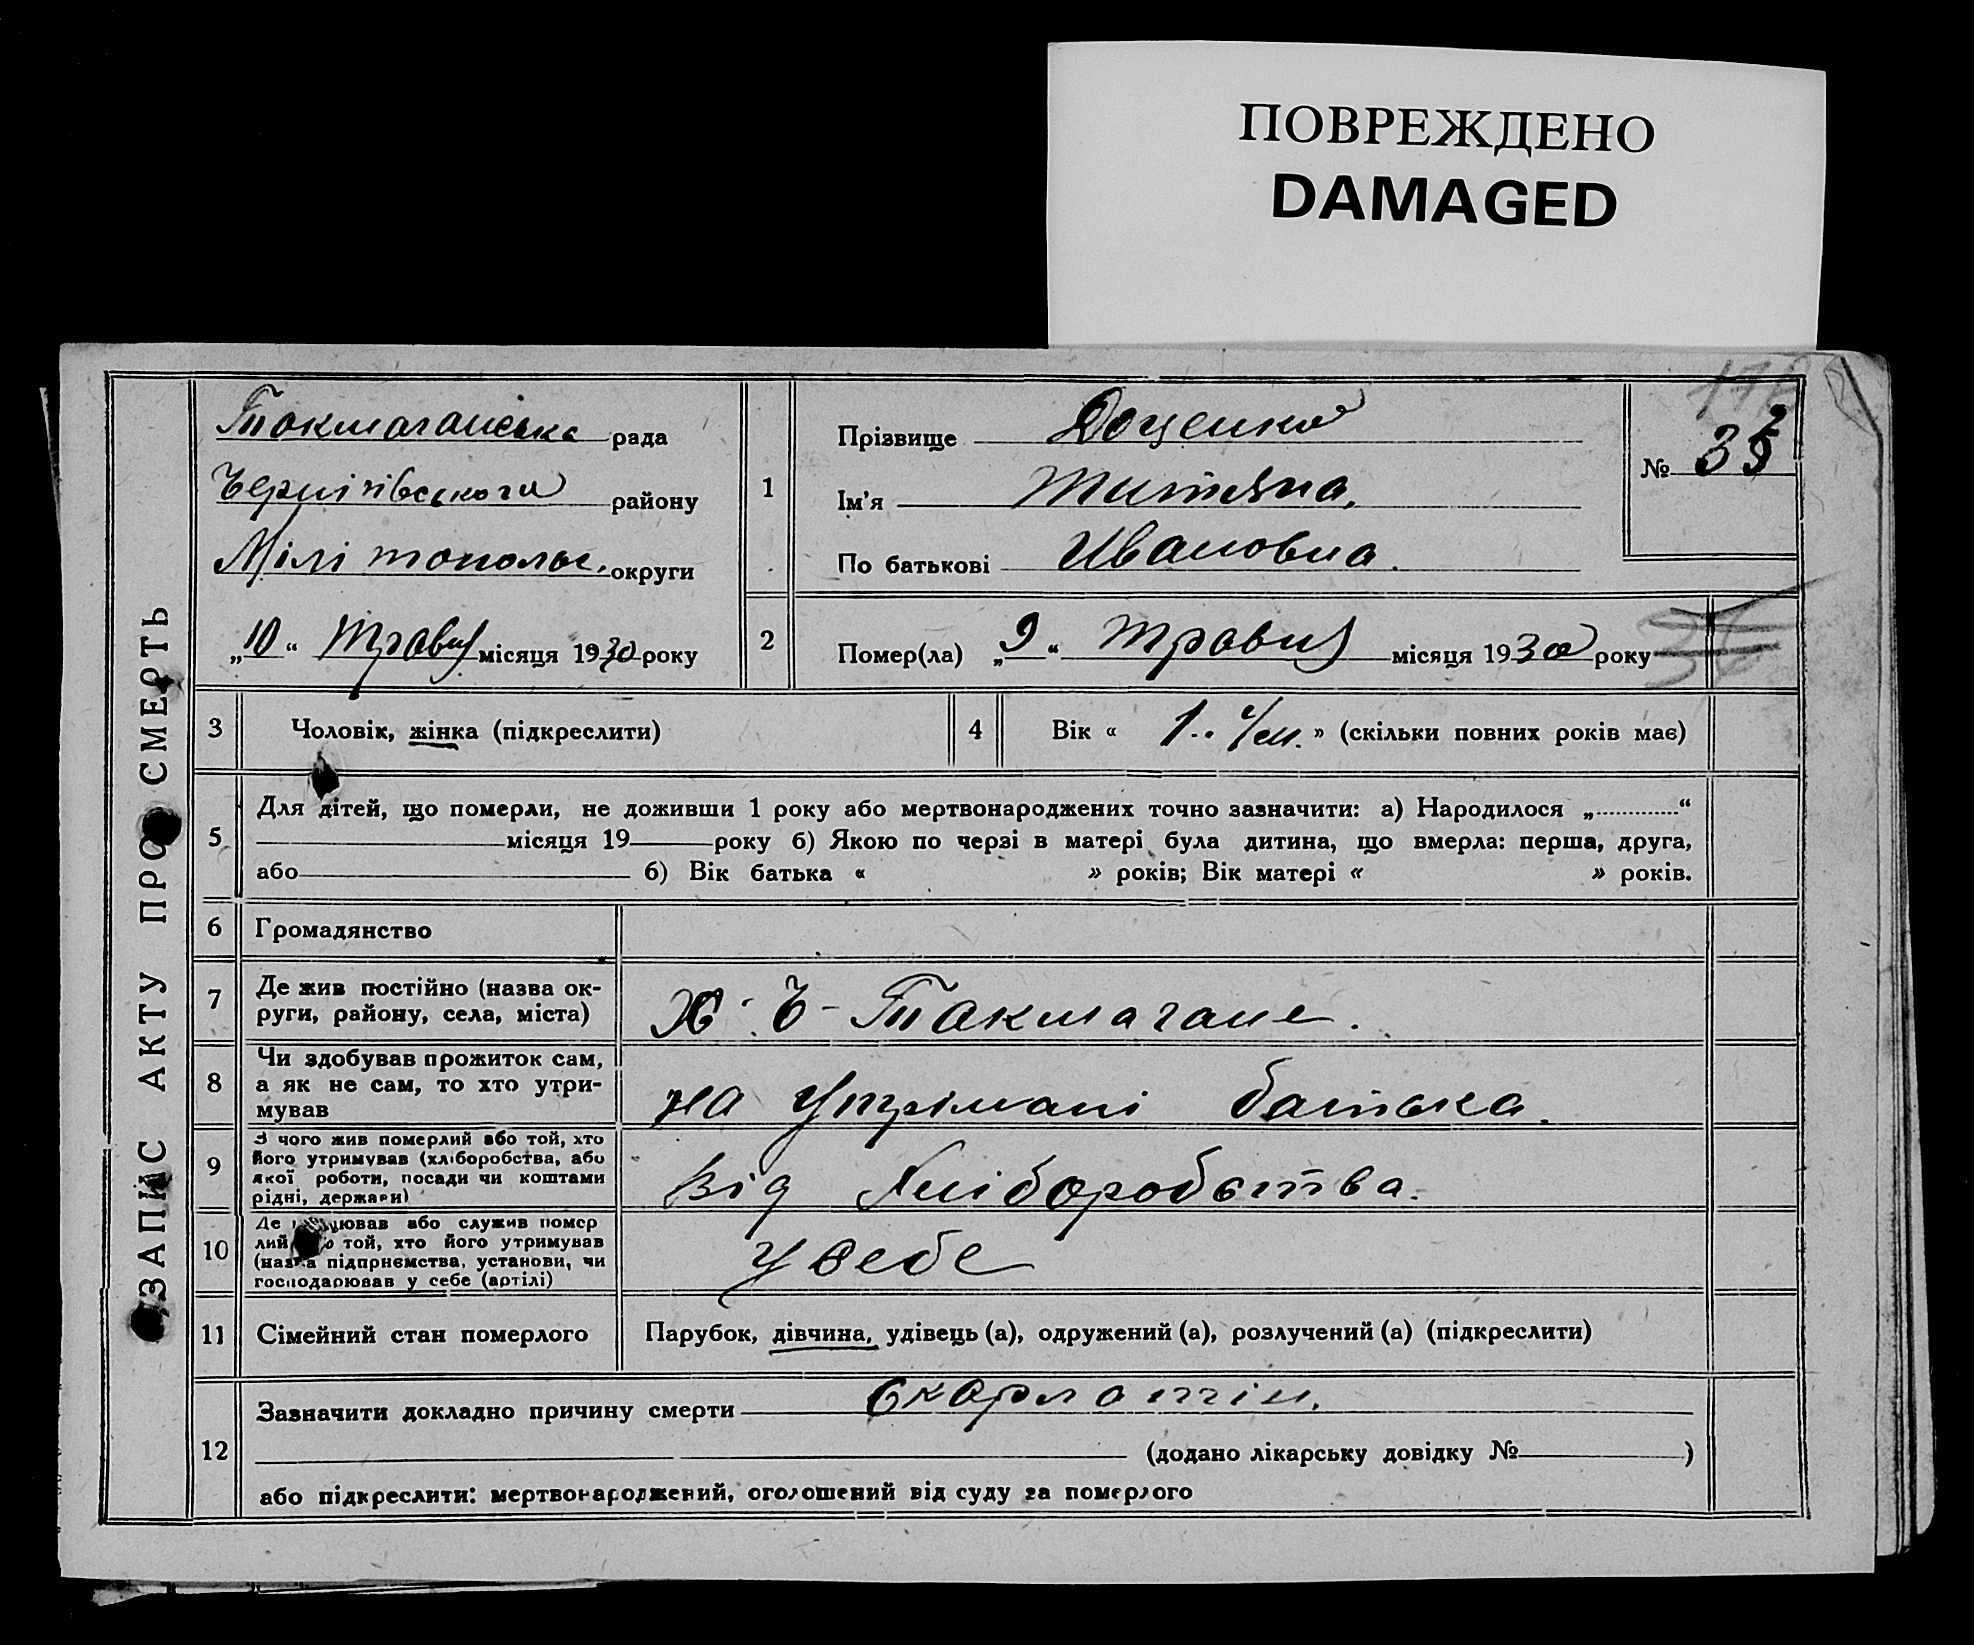 ПОВРЕЖДЕНО
DAMAGED
ЗАПИС АКТУ ПРО СМЕРТЬ
Токмаганська рада
Чернігівського району
Мілітопольс. округи
„10“ Травня місяця 1930 року
1
Прізвище Доценко
Ім'я Титяна.
По батькові Ивановна.
№ 3
2
Помер(ла) „9“ Травня місяця 1930 року
3
Чоловік, жінка (підкреслити)
4
Вік « 1.. » (скільки повних років має)
5
Для дітей, що померли, не доживши 1 року або мертвонароджених точно зазначити: а) Народилося „............“
місяця 19 року б) Якою по черзі в матері була дитина, що вмерла: перша, друга,
або б) Вік батька « » років; Вік матері « » років.
6
Громадянство
7
Де жив постійно (назва ок-
руги, району, села, міста)
Х. Б-Токмагане.
8
Чи здобував прожиток сам,
а як не сам, то хто утри-
мував
на утрімані батька.
9
З чого жив померлий або той, хто
його утримував (хліборобства, або
якої роботи, посади чи коштами
рідні, держави)
від Хліборобства.
10
Де або служив помер
лий той, хто його утримував
(назва підприємства, установи, чи
господарював у себе (артілі)
у себе
11
Сімейний стан померлого
Парубок, дівчина, удівець (а), одружений (а), розлучений (а) (підкреслити)
12
Зазначити докладно причину смерти Скарлотін.
(додано лікарську довідку № )
або підкреслити: мертвонароджений, оголошений від суду за померлого